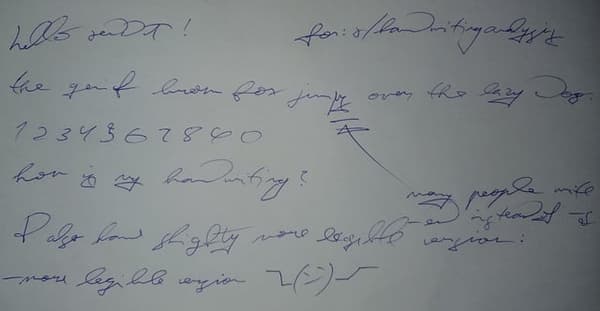 hello reddit!
for: r/handwritinganalysis
the quick brown fox jumps over the lazy dog.
1 2 3 4 5 6 7 8 9 0
how is my handwriting?
many people write
-ed instead of -s
I also have slightly more legible version:
-more legible version ¯\_(:)_/¯